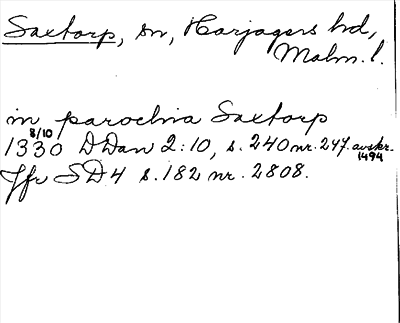 Saxtorp, sn, Harjagers hd,
Malm. l.
in parochia Saxtorp
8/10
1330 DDan 2:10, s. 240 nr. 247. avskr.
1494
Jfr SD4 s. 182 nr. 2808.